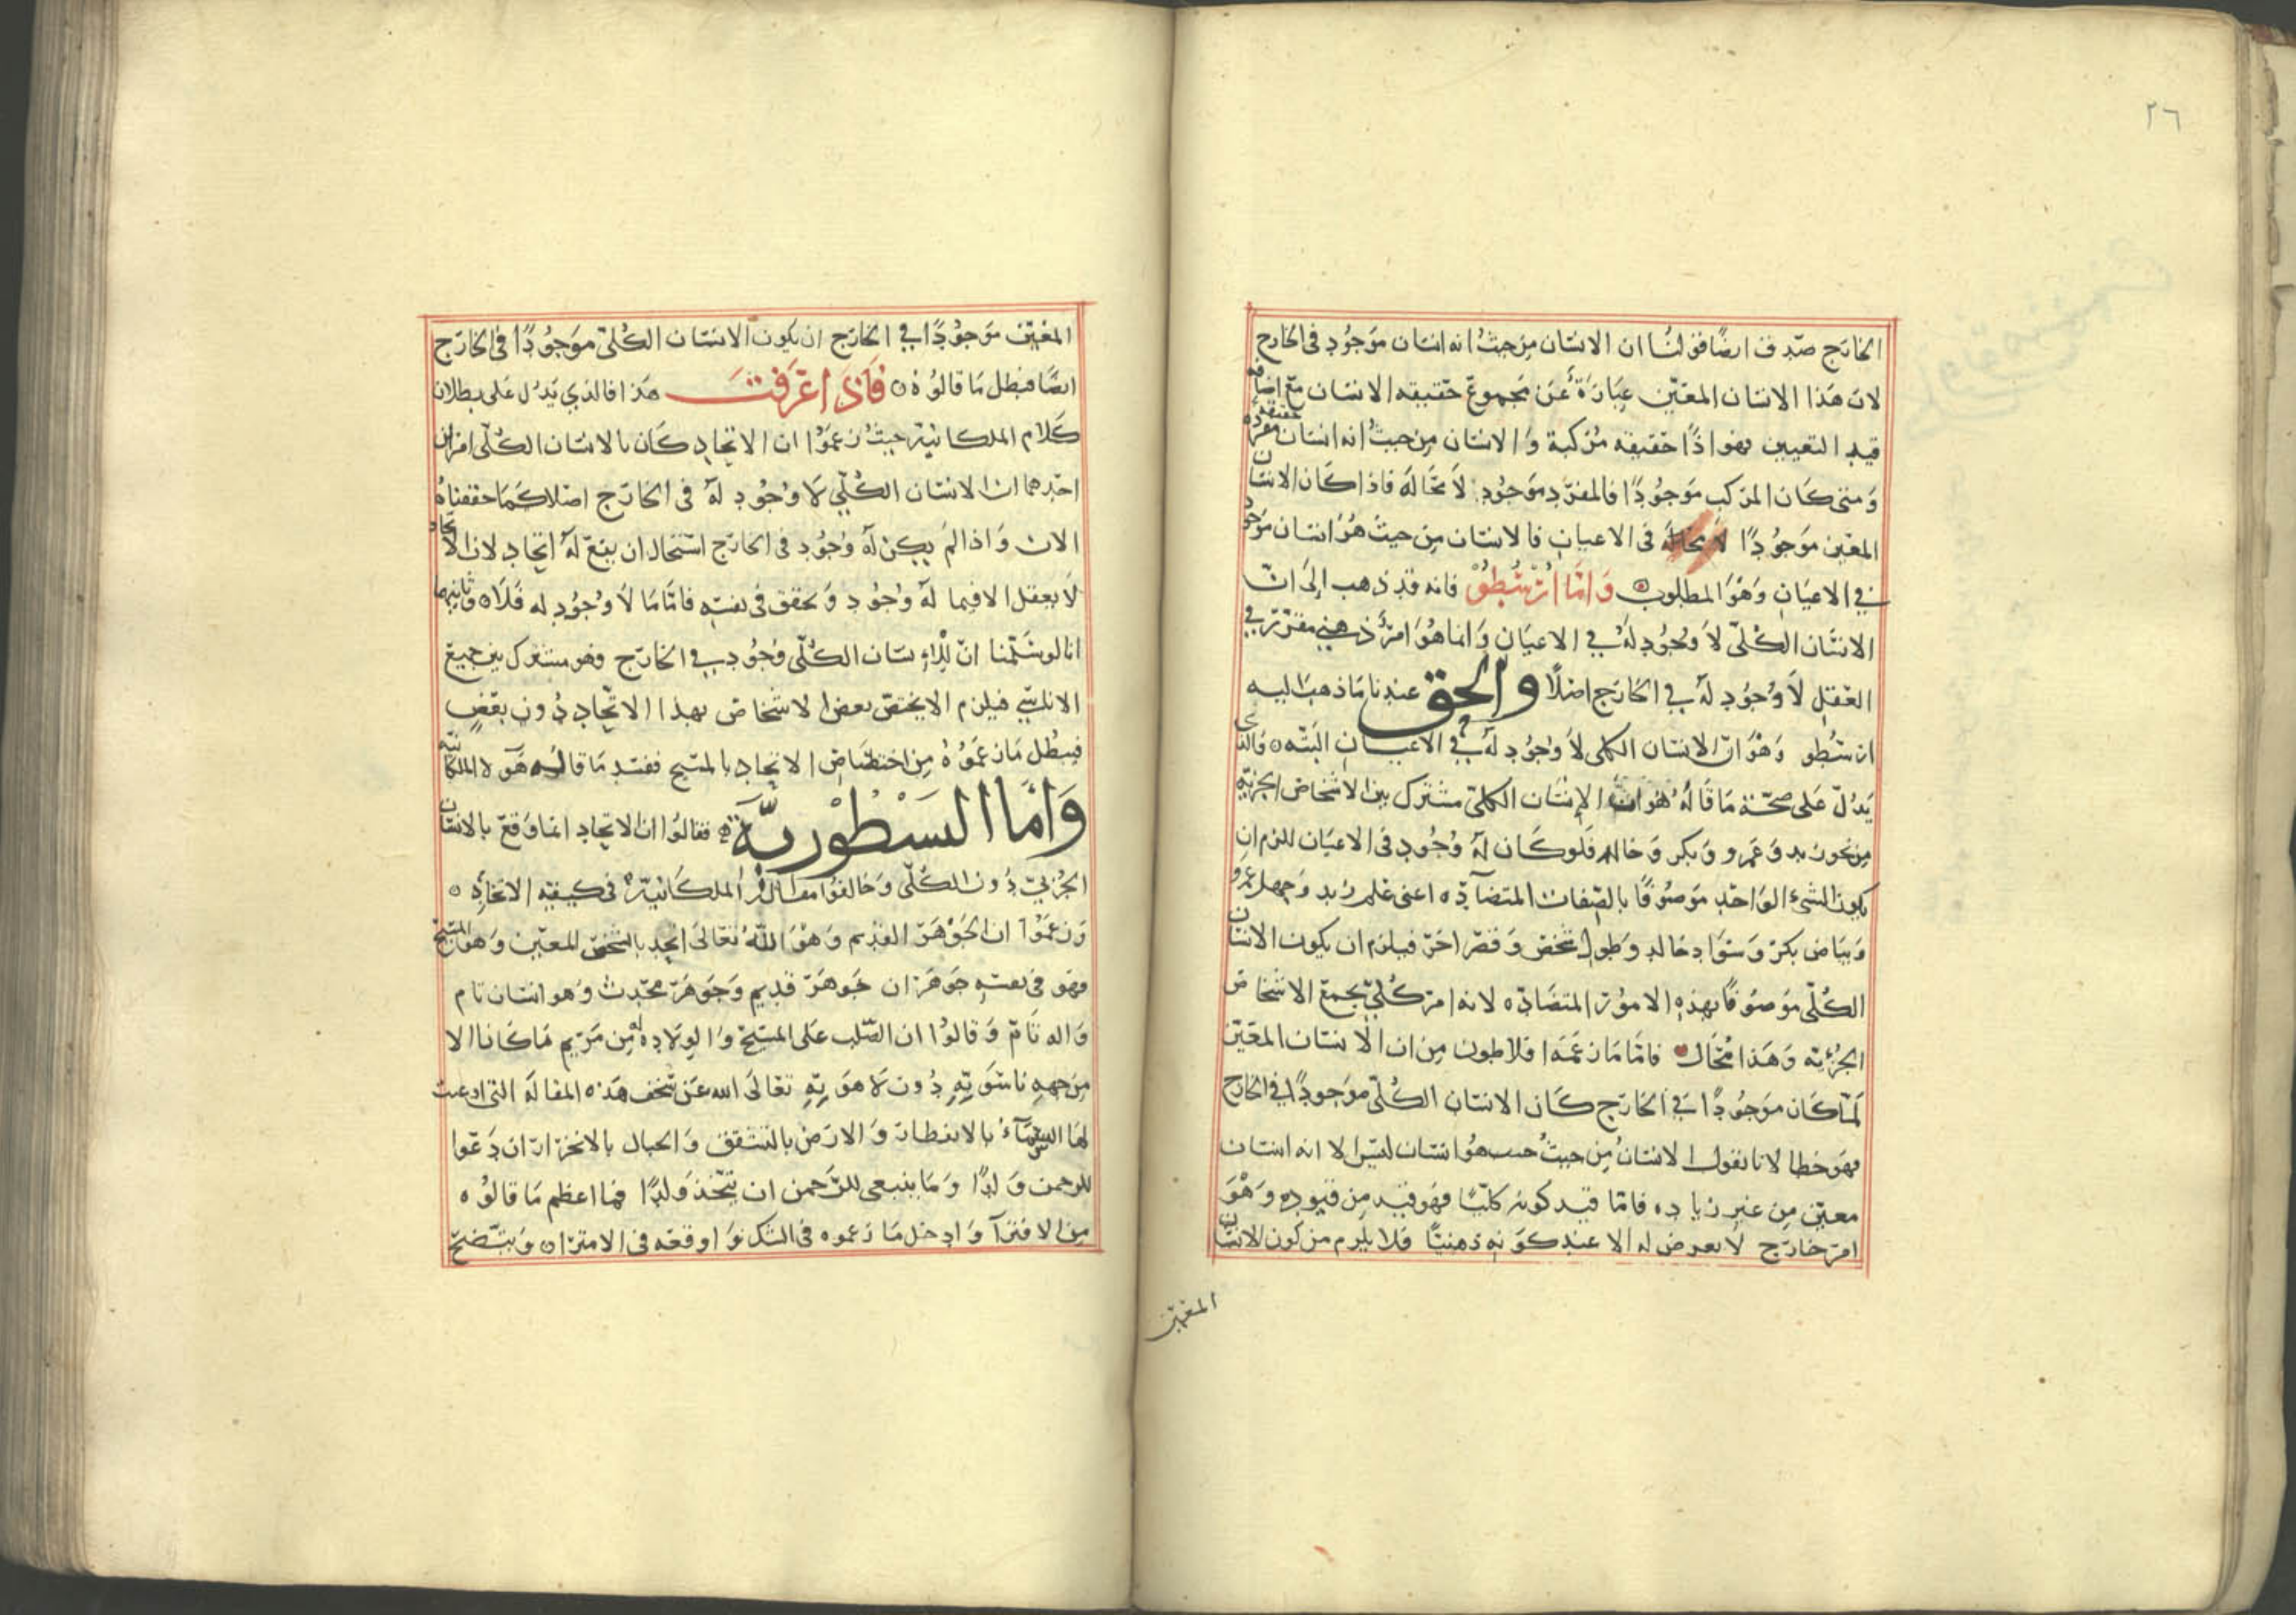 ٢٦
الخارج صدق ايضا قولنا ان الانسان من حيث انه انسان موجود فى الخارج
لان هذا الانسان المعيّن عبارة عن مجموع حقيقه الانسان مع اضافه
قيد التعيين فهو اذًا حقيقه مركبة والانسان من حيث انه انسان حقيقه مفرده
ومتى كان المركب موجودًا فالمفرد موجود لا محاله فاذا كان الانسان
المعيّن موجودًا لا محالة فى الاعيان فالانسان من حيث هو انسان موجود
في الاعيان وهو المطلوب وامّا ارسطو فانه قد ذهب الى ان
الانسان الكلّى لا وجود له في الاعيان وانما هو امر ذهني مقرّر في
العقل لا وجود له في الخارج اصلًا والحق عندنا ما ذهب اليه
ارسطو وهو انّ الانسان الكلى لا وجود له في الاعيان البتّه والذى
يدلّ على صحّة ما قاله هو انّ الإنسان الكلىّ مشترك بين الاشخاص الجزئيه
من نحو زيد وعمرو وبكر وخالد فلو كان له وجود فى الاعيان للزم ان
يكون الشىء الواحد موصوفًا بالصّفات المتضادّه اعنى علم زيد وجهل عمرو
وبياض بكر وسواد خالد وطول شخص وقصر اخر فيلزم ان يكون الانسان
الكلّى موصوفًا بهذه الامور المتضادّه لانه امر كلّيّ يجمع الاشخاص
الجزئيه وهذا محال فامّا ما زعمه افلاطون من ان الانسان المعيّن
لمّا كان موجودًا في الخارج كان الانسان الكلّى موجودًا في الخارج
فهو خطا لانا نقول الانسان من حيث هو انسان ليس الا انه انسان
معيّن من غير زياده فامّا قيد كونه كليًّا فهو قيد من قيوده وهو
امر خارج لا يعرض له الا عند كونه ذهنيًّا فلا يلزم من كون الانسان
المعيّن
المعيّن موجودًا في الخارج ان يكون الانسان الكلّى موجودًا فى الخارج
ايضًا فبطل ما قالوه فاذا عرفت هذا فالذي يدل على بطلان
كلام الملكانية حيث زعموا ان الاتحاد كان بالانسان الكلّى امران
احدهما ان الانسان الكلّي لا وجود له فى الخارج اصلا كما حققناه
الان واذا لم يكن له وجود فى الخارج استحال ان يقع له اتحاد لان الاتحاد
لا يعقل الا فيما له وجود وتحقق فى نفسه فامّا ما لا وجود له فلا وثانيهما
انا لو سلّمنا انّ للانسان الكلّى وجود في الخارج وهو مشترك بين جميع
الاناسيّ فيلزم الا يختص بعض الاشخاص بهذا الاتحاد دون بعضٍ
فبطل ما زعموه من اختصاص الاتحاد بالمسيح ففسد ما قاله هولا الملكانيه
وامّا النسطوريّة فقالوا ان الاتحاد انما وقع بالانسان
الجزئيّ دون الكلّى وخالفوا مقالة الملكانيّة فى كيفيه الاتحاد
وزعموا ان الجوهر القديم وهو اللّه تعالى اتحد بالشخص المعيّن وهو المسيح
فهو فى نفسه جوهران جوهر قديم وجوهر محدث وهو انسان تام
واله تامّ وقالوا ان الصّلب على المسيح والولاده له من مريم ما كانا الا
من جهه ناسوتيّه دون لاهوتيّه تعالى الله عن سخف هذه المقاله التى ادعت
لها السّماء بالانفطار والارض بالتشقق والجبال بالانخرار ان دعوا
للرحمن ولدًا وما ينبغى للرّحمن ان يتّخذ ولدًا فما اعظم ما قالوه
من الافترآ وادخل ما زعموه فى الشك واوقعه فى الامترا ويتّضح